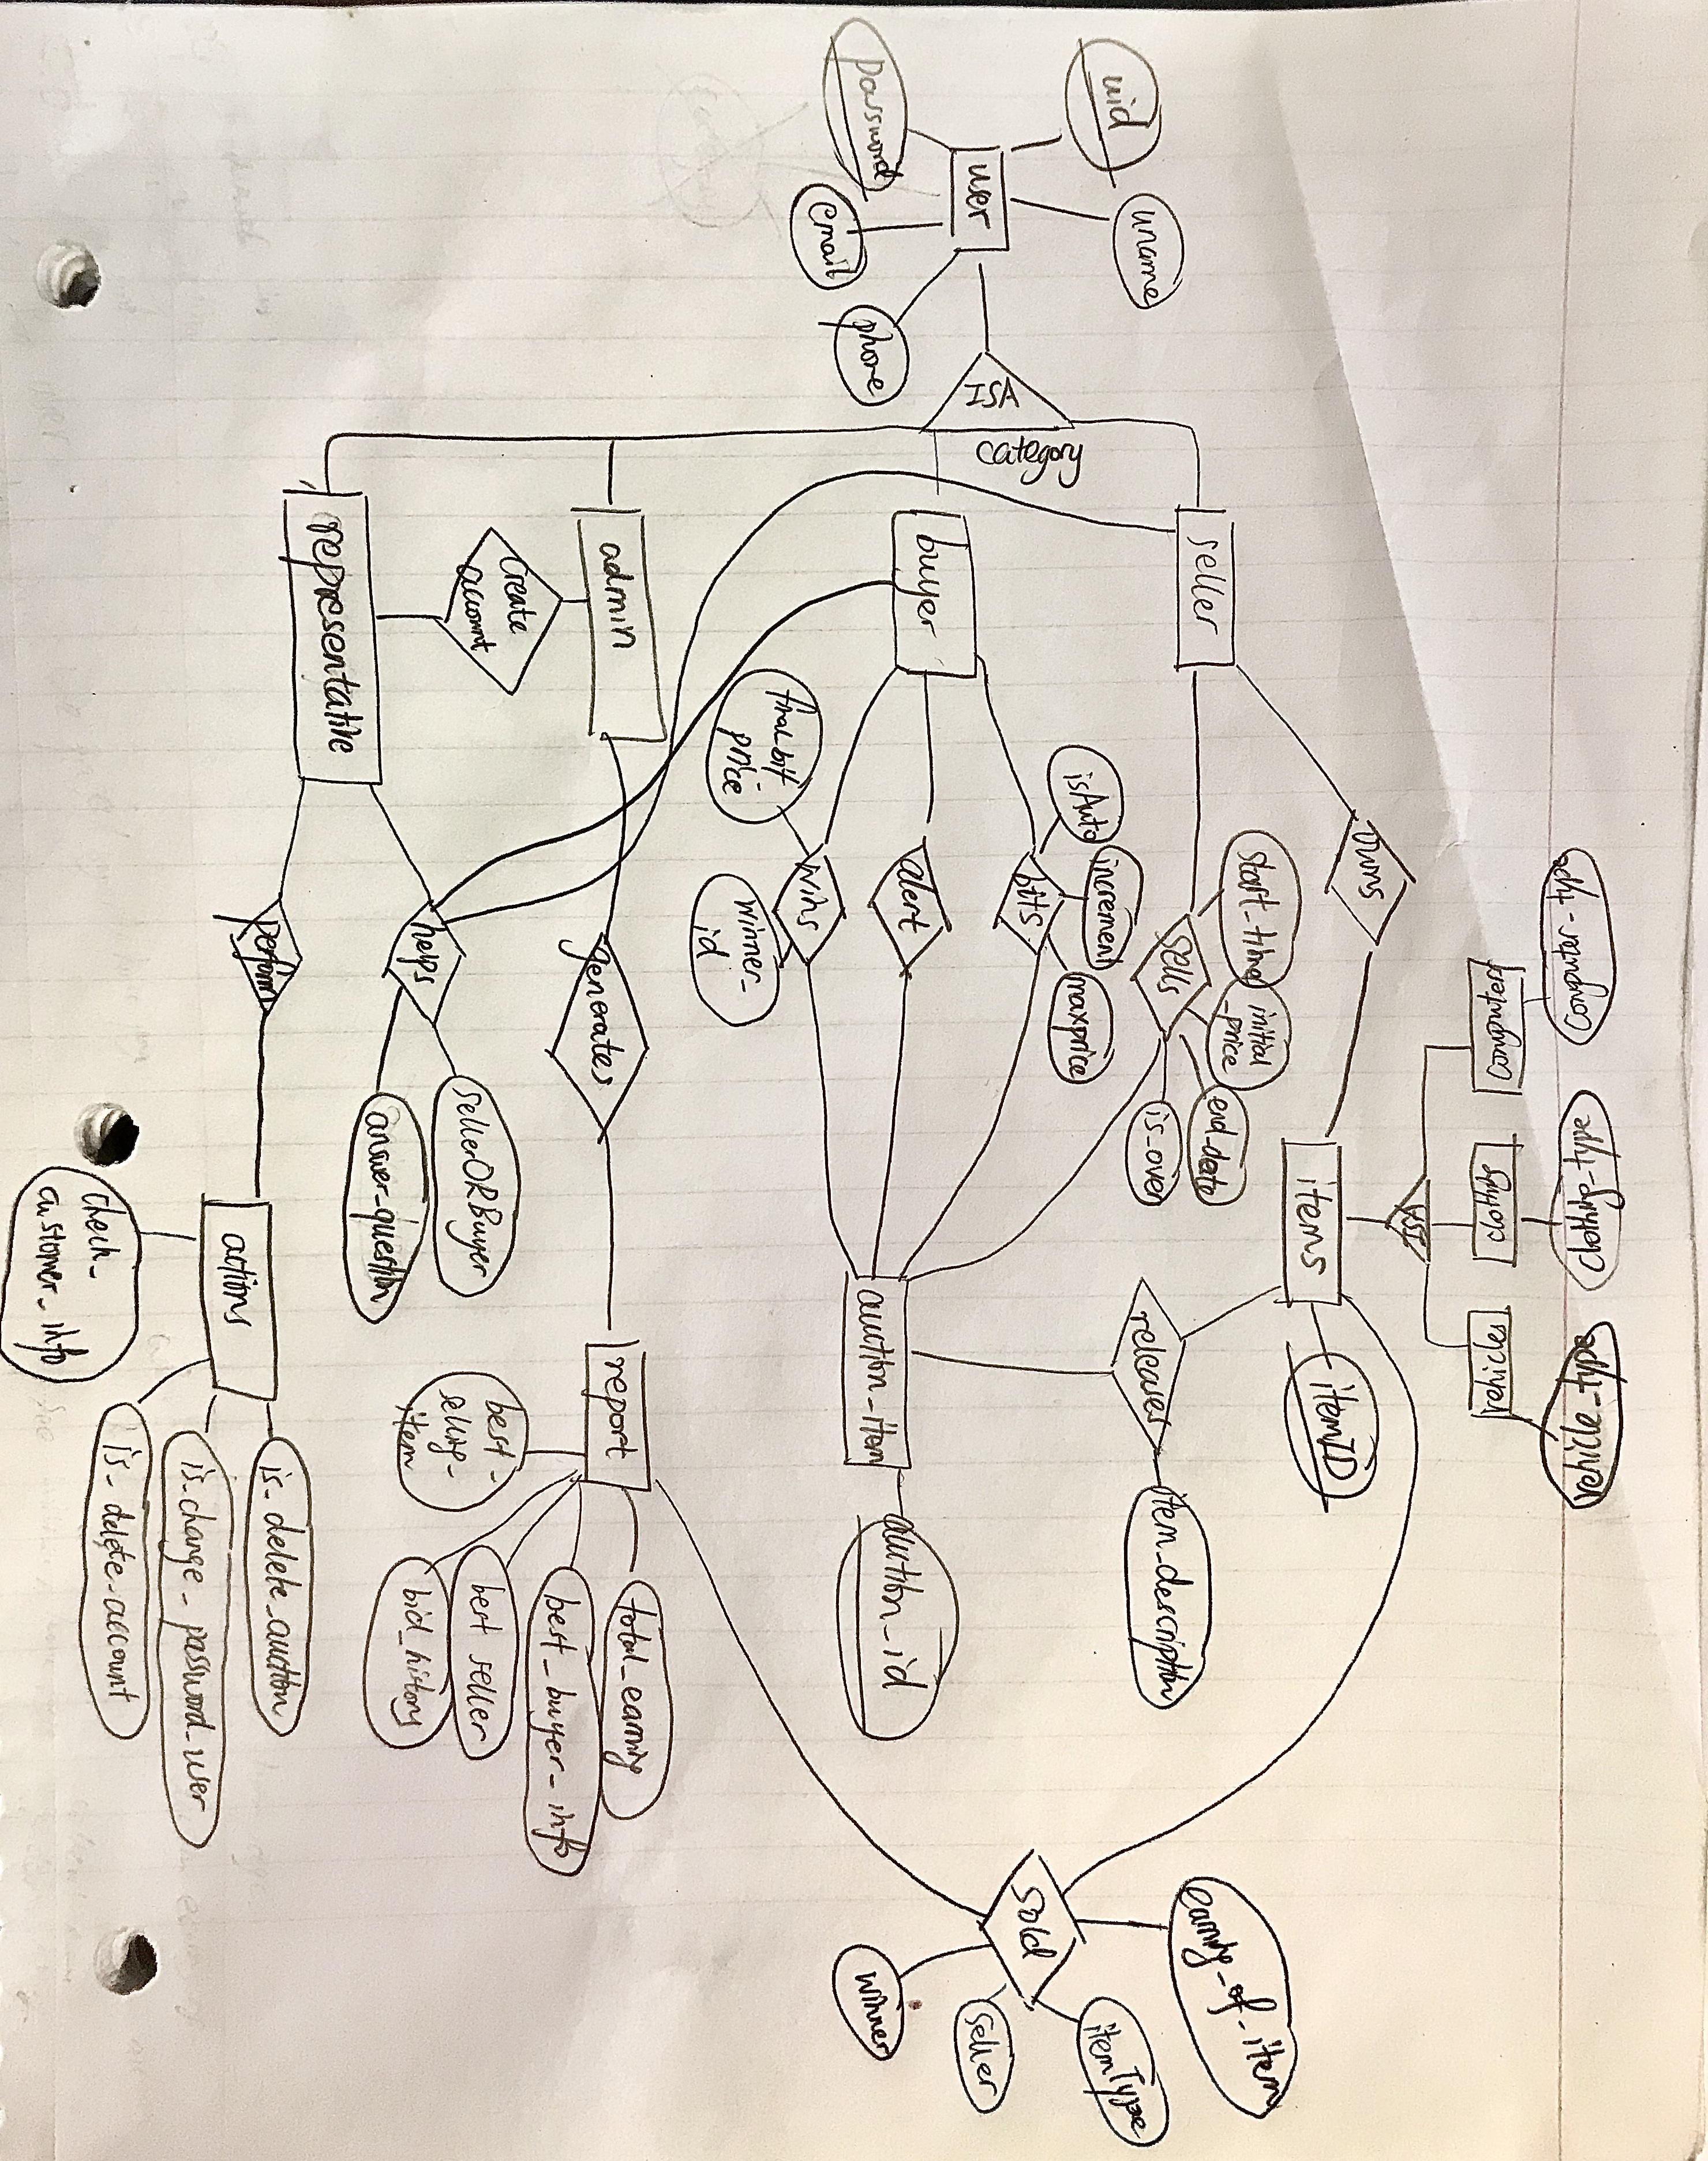 computer-type
clothing-type
vehicle-type
computers
clothing
vehicles
ISA
owns
items
itemID
start_time
initial
_price
end_date
seller
sells
is_over
releases
item_description
earning_of_item
itemType
sold
seller
winner
uid
uname
user
password
email
phone
ISA
category
isAuto
increment
maxprice
bits
buyer
alert
auction_item
auction_id
wins
final_bit_
price
winner_
id
admin
generates
report
total_earning
best_buyer_info
best seller
bid_history
best_
selling_
item
create
account
helps
sellerORBuyer
answer_question
representative
perform
actions
is_delete_auction
is_change_password_user
is_delete_account
check_
customer_info